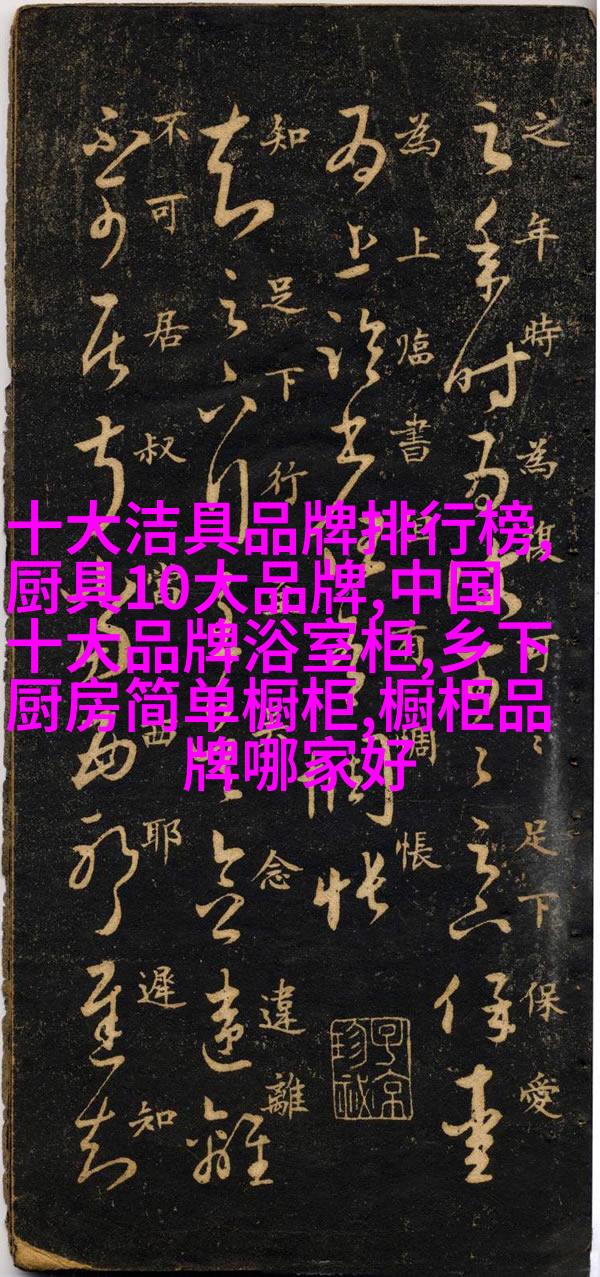 十大洁具品牌排行榜,
厨具10大品牌,中国
十大品牌浴室柜,乡下
厨房简单橱柜,橱柜品
牌哪家好
之年時為復可〻足下保愛
為上臨書但有惆悵
知足下行至念違離
不可居叔當西耶遲知
子京珍秘